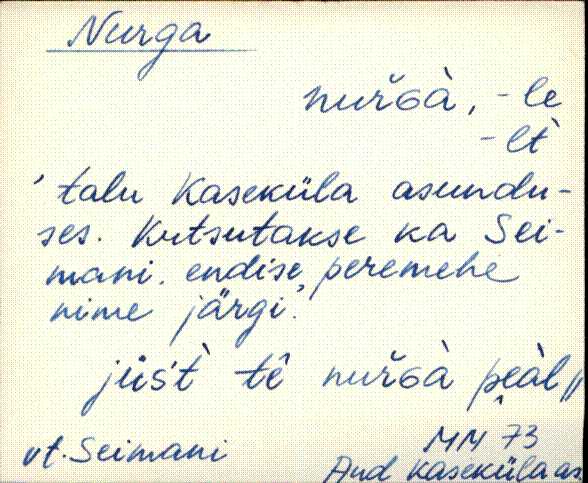 Nurga
nuřɢà, -le
-lt̀
' talu Kaseküla asundu-
ses. Kutsutakse ka Sei-
mani. endise peremehe
nime järgi.'
jüs't̀ tê nuřɢà pèàl„
vt. Seimani
MM 73
And Kaseküla as